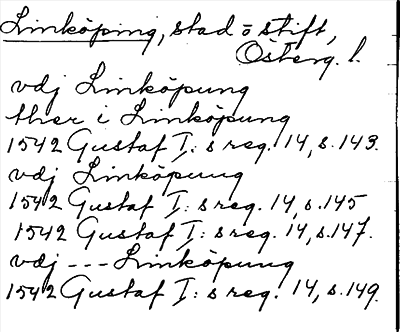 Linköping, stad o stift,
Österg. l.
vdj Linköpung
ther i Linköpung
1542 Gustaf I: s reg. 14, s. 143.
vdj Linköpung
1542 Gustaf I: s reg. 14, s. 145
1542 Gustaf I: s reg. 14, s. 147.
vdj --- Linköpung
1542 Gustaf I: s reg. 14, s. 149.